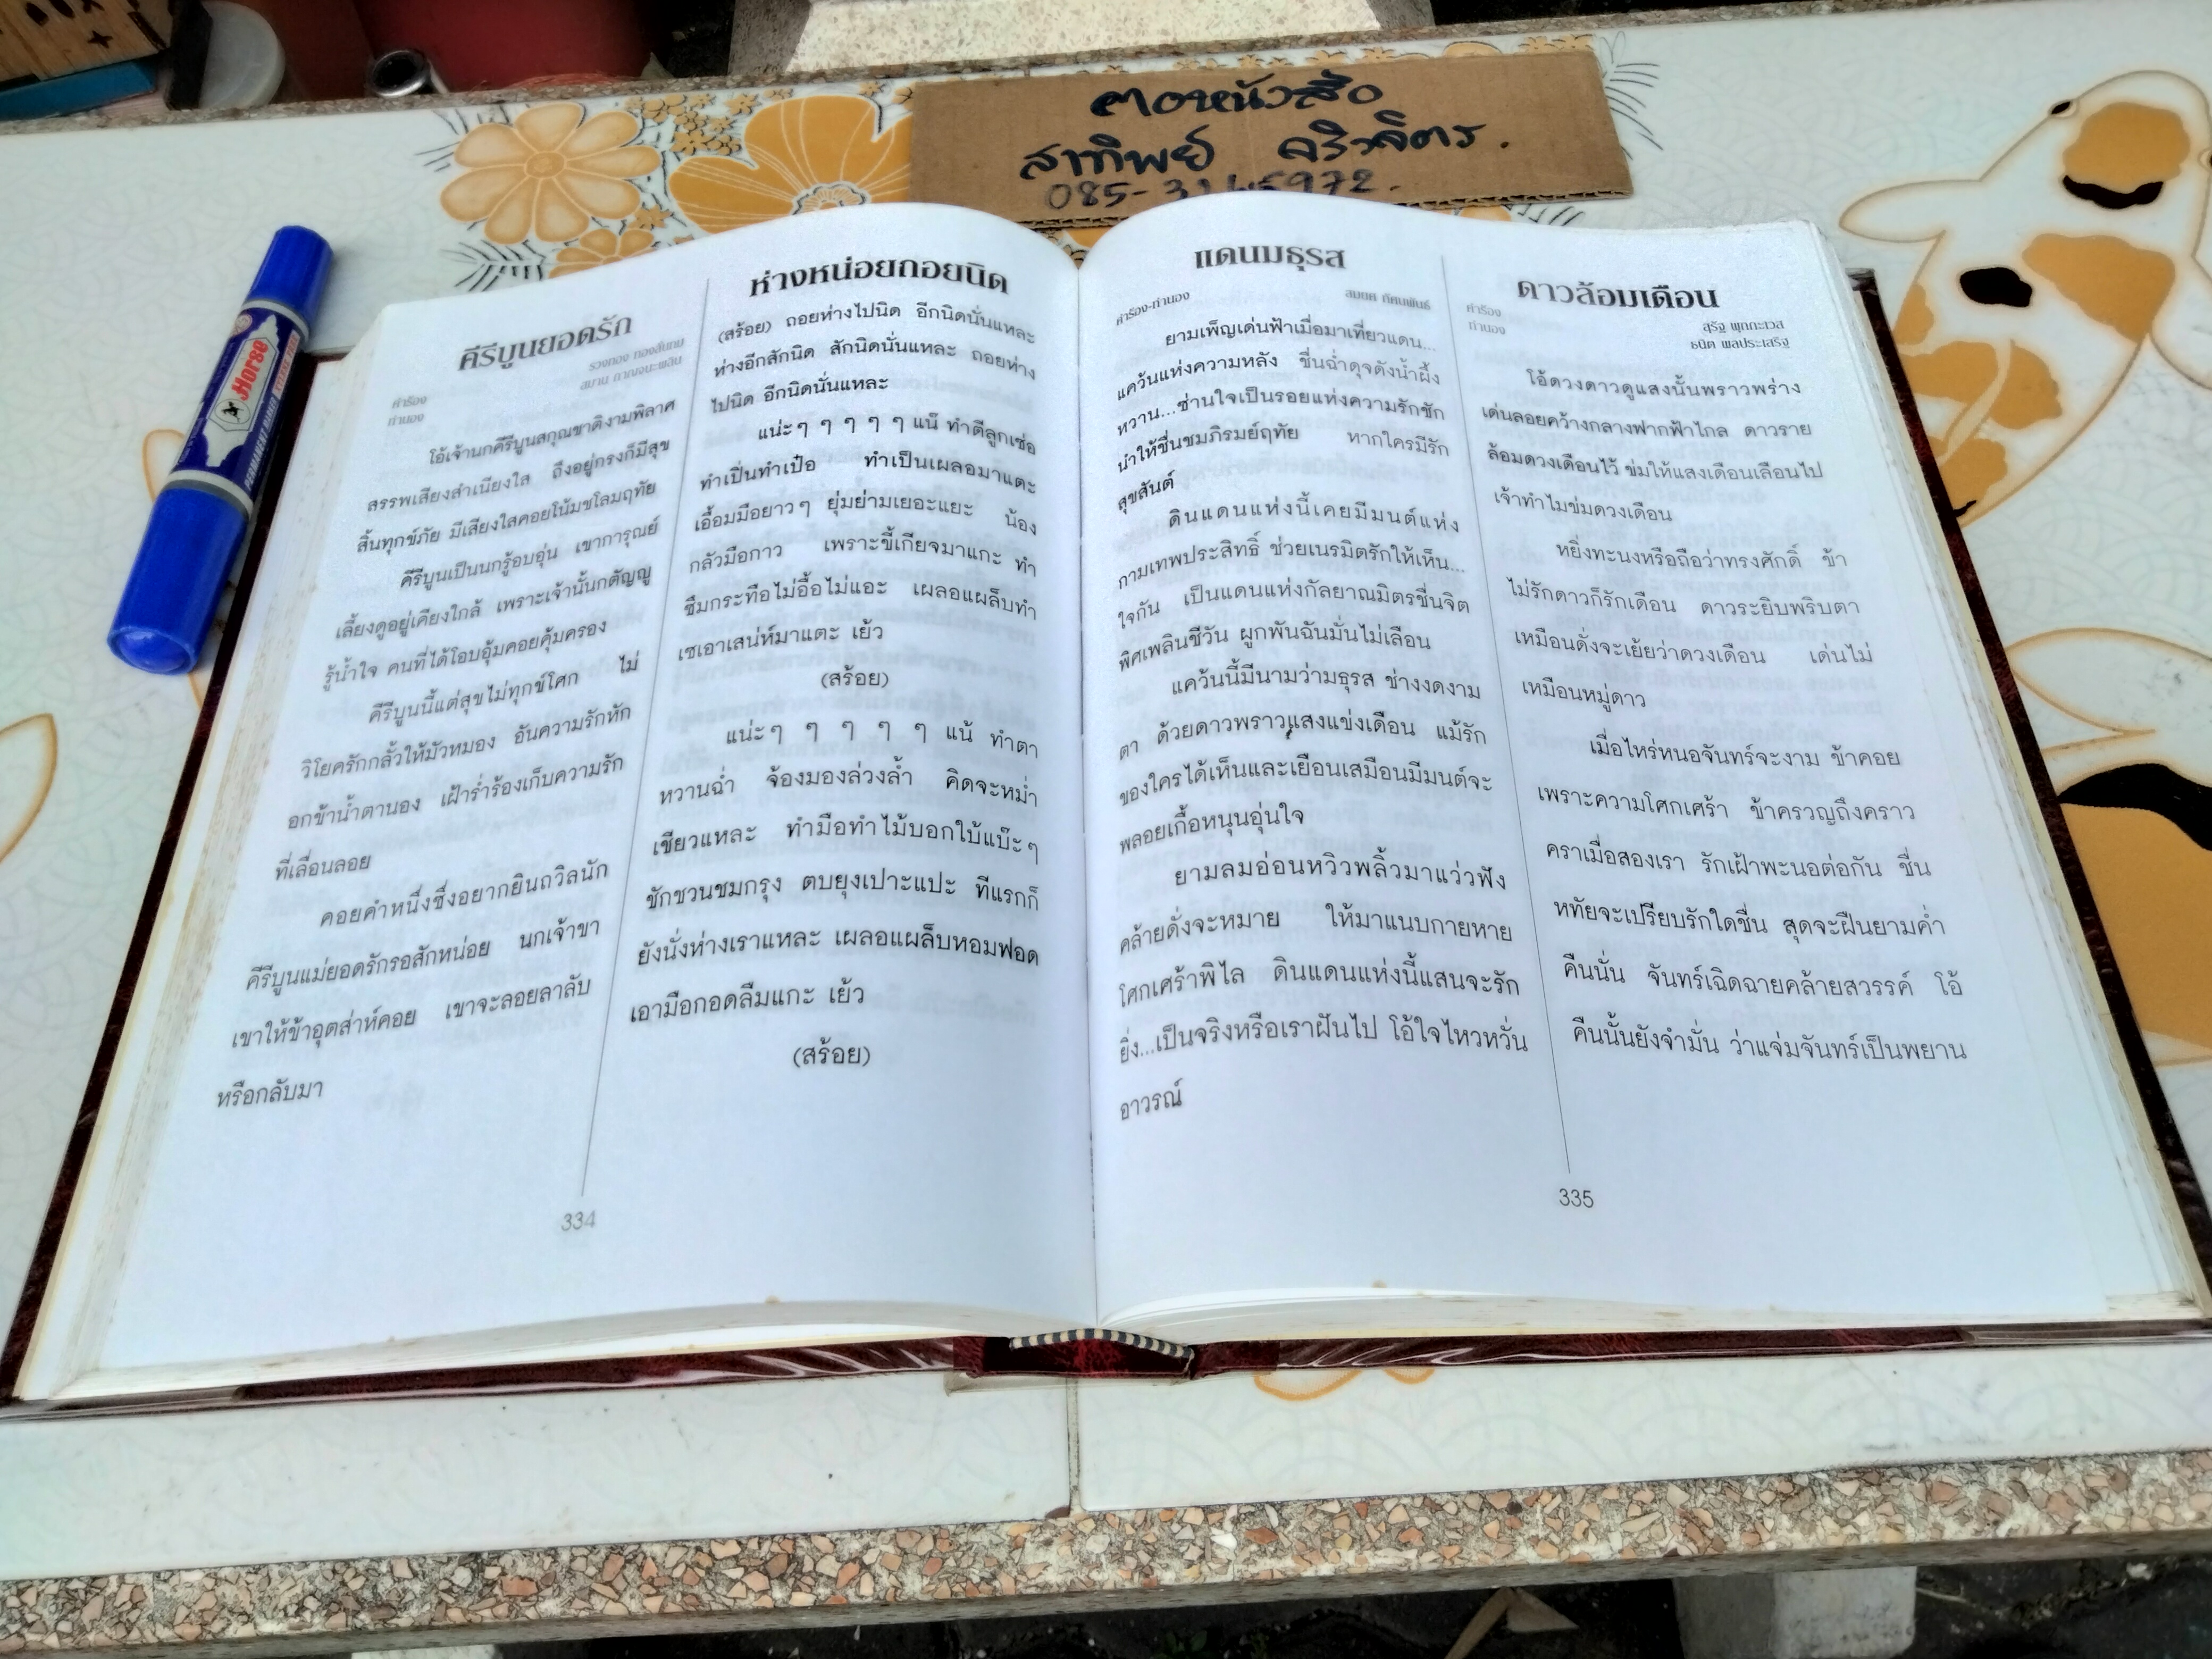 ตอหนังสือ
สาทิพย์
085-3
Horse
PERMANENT
คีรีบูนยอดรัก
คำร้อง รวงทอง ทองลั่นทม
ทำนอง สมาน กาญจนะผลิน
โอ้เจ้านกคีรีบูนสกุณชาติงามพิลาศ
สรรพเสียงสำเนียงใส ถึงอยู่กรงก็มีสุข
สิ้นทุกข์ภัย มีเสียงใสคอยโน้มชโลมฤทัย
คีรีบูนเป็นนกรู้อบอุ่น เขาการุณย์
เลี้ยงดูอยู่เคียงใกล้ เพราะเจ้านั้นกตัญญู
รู้น้ำใจ คนที่ได้โอบอุ้มคอยคุ้มครอง
คีรีบูนนี้แต่สุขไม่ทุกข์โศก ไม่
วิโยครักกลั้วให้มัวหมอง อันความรักหัก
อกข้าน้ำตานอง เฝ้าร่ำร้องเก็บความรัก
ที่เลื่อนลอย
คอยคำหนึ่งซึ่งอยากยินถวิลนัก
คีรีบูนแม่ยอดรักรอสักหน่อย นกเจ้าขา
เขาให้ข้าอุตส่าห์คอย เขาจะลอยลาลับ
หรือกลับมา
ห่างหน่อยถอยนิด
(สร้อย) ถอยห่างไปนิด อีกนิดนั่นแหละ
ห่างอีกสักนิด สักนิดนั่นแหละ ถอยห่าง
ไปนิด อีกนิดนั่นแหละ
แน่ะๆ ๆ ๆ ๆ ๆ แน้ ทำดีลูกเซ่อ
ทำเปิ่นทำเป๋อ ทำเป็นเผลอมาแตะ
เอื้อมมือยาวๆ ยุ่มย่ามเยอะแยะ น้อง
กลัวมือกาว เพราะขี้เกียจมาแกะ ทำ
ซึมกระทือไม่อื้อไม่แอะ เผลอแผล็บทำ
เซเอาเสน่ห์มาแตะ เย้ว
(สร้อย)
แน่ะๆ ๆ ๆ ๆ ๆ แน้ ทำตา
หวานฉ่ำ จ้องมองล่วงล้ำ คิดจะหม่ำ
เชียวแหละ ทำมือทำไม้บอกใบ้แบ๊ะๆ
ชักชวนชมกรุง ตบยุงเปาะแปะ ทีแรกก็
ยังนั่งห่างเราแหละ เผลอแผล็บหอมฟอด
เอามือกอดลืมแกะ เย้ว
(สร้อย)
334
แดนมธุรส
คำร้อง-ทำนอง สมยศ ทัศนพันธ์
ยามเพ็ญเด่นฟ้าเมื่อมาเที่ยวแดน...
แคว้นแห่งความหลัง ชื่นฉ่ำดุจดังน้ำผึ้ง
หวาน...ซ่านใจเป็นรอยแห่งความรักชัก
นำให้ชื่นชมภิรมย์ฤทัย หากใครมีรัก
สุขสันต์
ดินแดนแห่งนี้เคยมีมนต์แห่ง
กามเทพประสิทธิ์ ช่วยเนรมิตรักให้เห็น...
ใจกัน เป็นแดนแห่งกัลยาณมิตรชื่นจิต
พิศเพลินชีวัน ผูกพันฉันมั่นไม่เลือน
แคว้นนี้มีนามว่ามธุรส ช่างงดงาม
ตา ด้วยดาวพราวแสงแข่งเดือน แม้รัก
ของใครได้เห็นและเยือนเสมือนมีมนต์จะ
พลอยเกื้อหนุนอุ่นใจ
ยามลมอ่อนหวิวพลิ้วมาแว่วฟัง
คล้ายดั่งจะหมาย ให้มาแนบกายหาย
โศกเศร้าพิไล ดินแดนแห่งนี้แสนจะรัก
ยิ่ง...เป็นจริงหรือเราฝันไป โอ้ใจไหวหวั่น
อาวรณ์
ดาวล้อมเดือน
คำร้อง สุรัฐ พุกกะเวส
ทำนอง ธนิต ผลประเสริฐ
โอ้ดวงดาวดูแสงนั้นพราวพร่าง
เด่นลอยคว้างกลางฟากฟ้าไกล ดาวราย
ล้อมดวงเดือนไว้ ข่มให้แสงเดือนเลือนไป
เจ้าทำไมข่มดวงเดือน
หยิ่งทะนงหรือถือว่าทรงศักดิ์ ข้า
ไม่รักดาวก็รักเดือน ดาวระยิบพริบตา
เหมือนดั่งจะเย้ยว่าดวงเดือน เด่นไม่
เหมือนหมู่ดาว
เมื่อไหร่หนอจันทร์จะงาม ข้าคอย
เพราะความโศกเศร้า ข้าครวญถึงคราว
คราเมื่อสองเรา รักเฝ้าพะนอต่อกัน ชื่น
หทัยจะเปรียบรักใดชื่น สุดจะฝืนยามค่ำ
คืนนั่น จันทร์เฉิดฉายคล้ายสวรรค์ โอ้
คืนนั้นยังจำมั่น ว่าแจ่มจันทร์เป็นพยาน
335